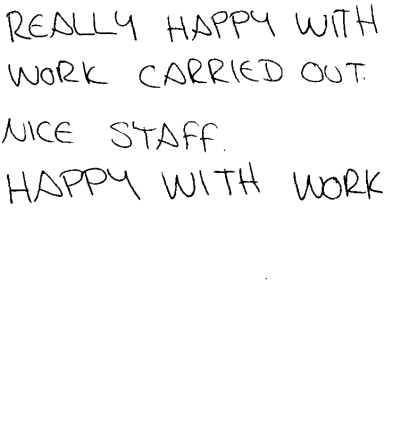 REALLY HAPPY WITH
WORK CARRIED OUT.
NICE STAFF.
HAPPY WITH WORK